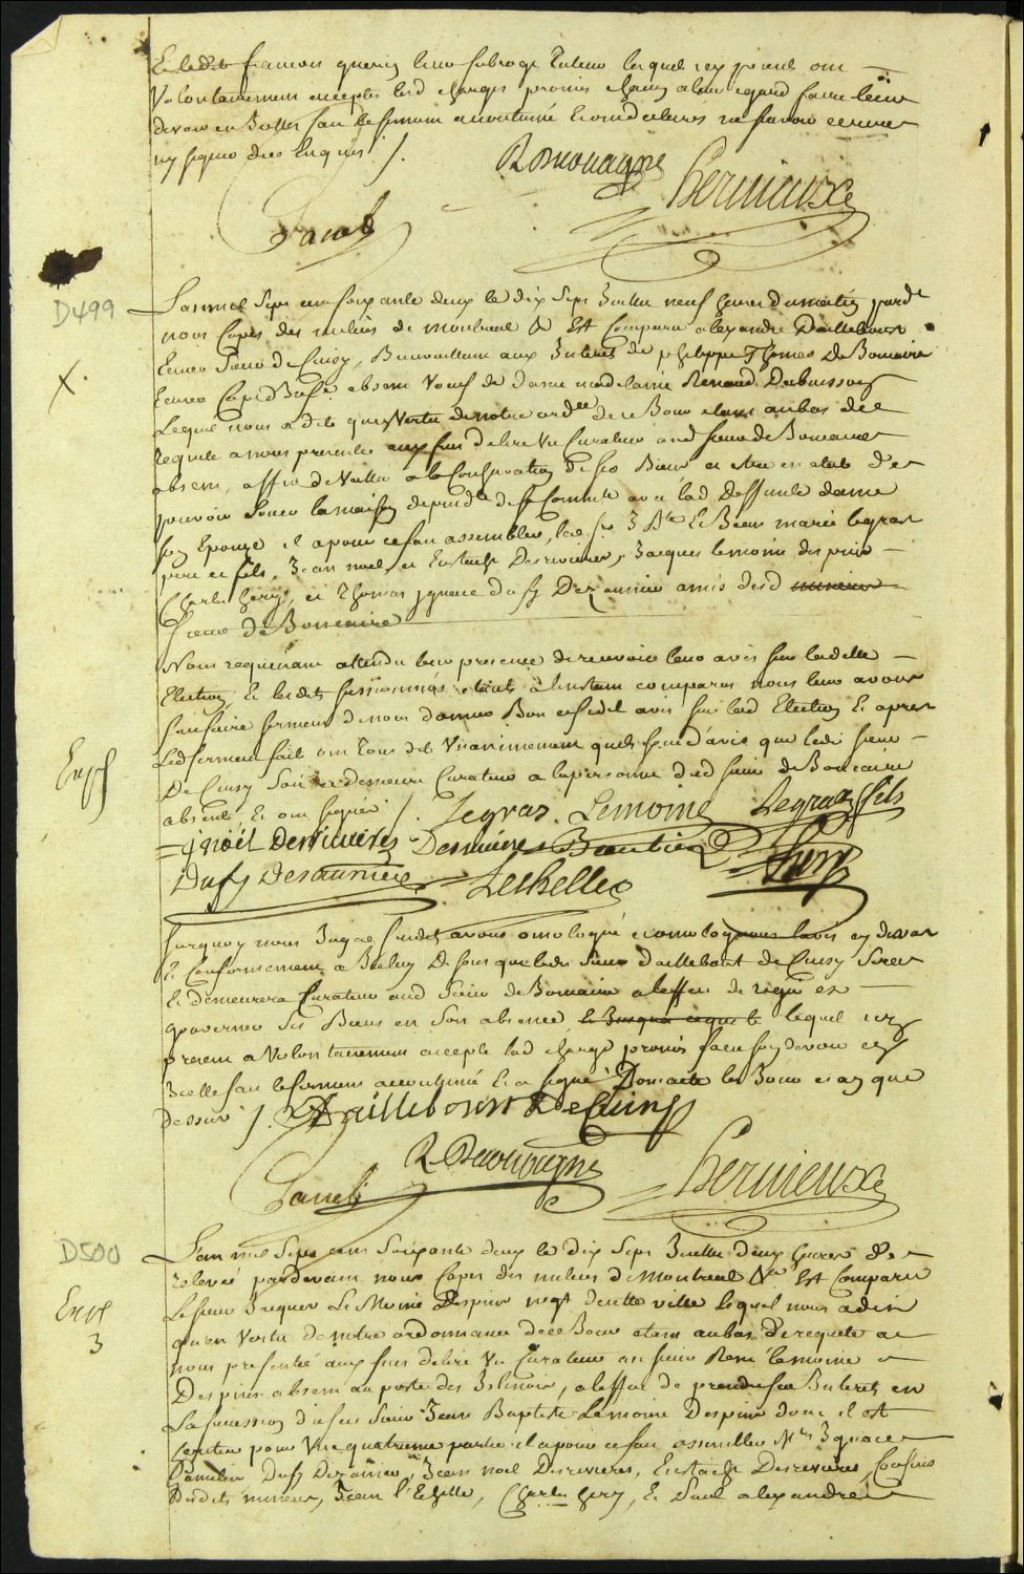 Et ledit francois guerin leur subrogé Tuteur lesquels icy presents ont
Volontairement accepté lesd charges promis chacun a leur egard faire leur
devoir en Icelles sous le serment accoutumé
ny signer de ce Enquis /.
R Decouagne
Hervieux
Panet
D499
Lan mil Sept cent soixante deux le dix Sept Juillet neuf heures du matin pard
nous Capes des milices de montreal & Est Comparu alexandre Dailleboust
Ecuier Sieur de Cuisy, Bienveillant aux Interets de philippe Thomas De Boncaire
X.
absent Veuf de dame madelaine Renaud Dubuisson
Lequel nous a dit quen Vertu de notre ordce de ce Jour etant au bas de
requete a nous presentée aux fins delire Un Curateur aud sieur de Boncaire
absent, affin de Veiller a la Conservation de ses Biens et etre en etat de
pouvoir la maison dependte de sa Comunté avec lad Deffunte dame
son Epouze il a pour ce fait assembler, les Srs J Bte Et Jean marie legras
pere et fils, Jean noel, et Eustache Desrivieres, Jacques lemoine despins
Charles hery, et Thomas ignace dufy Dezaunier amis dud
sieur De Boncaire
Nous requerant attendu leur presence de recevoir leur avis sur lad
Election, Et lesdits sus nommés etant a linstant comparus nous leur avons
fait faire serment de nous donner Bon et fidel avis sur lad Election Et apres
Led serment fait ont Tous dit Unanimement quils sont davis que ledit sieur
Exp
De Cuisy Soit et demeure Curateur a la personne dud sieur de Boncaire
absent, Et ont signé /. Legras. Lemoine Legras fils
j noël Desrivieres Desrivieres Beaubien Hery
Dufy Desaunier Leschelle
Surquoy nous Juges susdits avons omologué et omologuons lavis cy devant
Et Conformement a Iceluy Disons que ledit Sieur dailleboust de Cuisy Sera
Et demeurera Curateur aud Sieur de Boncaire a leffet de regir et
gouverner Ses Biens en Son absence, lequel icy
present a Volontairement accepté lad charge promis faire son devoir en
Icelle sous le serment accoutumé Et a signé Dont acte les Jour et an que
dessus /. Dailleboust De Cuisy
R Decouagne
Panet
Hervieux
D500
Lan mil Sept cent Soixante deux le dix Sept Juillet deux heures de
relevée pardevant nous Capes des milices de Montreal & Est Comparu
Exp
Le sieur Jacques Le Moine Despins negt de cette ville lequel nous a dit
3
quen Vertu de notre ordonnance de ce Jour etant au bas de requete a
nous presentée aux fins delire Un Curateur au sieur René lemoine
Despins absent au poste des Ilinois, a leffet de prendre ses Interets en
La succession du feu Sieur Jean Baptiste Lemoine Despins dont il est
heritier pour Une quatrieme partie il a pour ce fait assembler Mrs Ignace
Dufy Dezaunier, Jean noel Desrivieres, Eustache Desrivieres, Cousins
Desdits mineurs, Jean l'Echelle, Charles hery, Et Paul alexandre